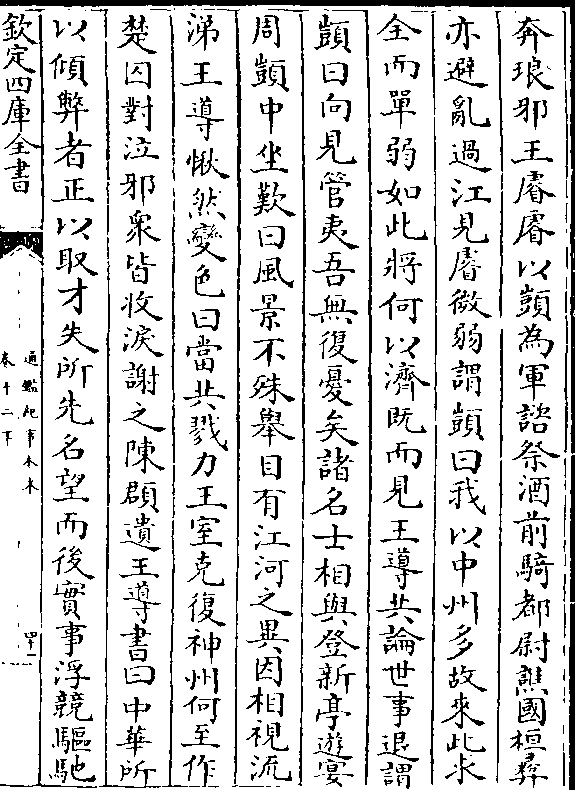 奔琅邪王睿睿以顗為軍諮祭酒前騎都尉譙國桓彝
亦避亂過江見睿微弱謂顗曰我以中州多故來此求
全而單弱如此將何以濟既而見王導共論世事退謂
顗曰向見管夷吾無復憂矣諸名士相與登新亭遊宴
周顗中坐歎曰風景不殊舉目有江河之異因相視流
涕王導愀然變色曰當共戮力王室克復神州何至作
楚囚對泣邪衆皆收淚謝之陳頵遺王導書曰中華所
以傾弊者正以取才失所先名望而後實事浮競驅馳
欽定四庫全書
通鑑紀事本末
卷十二下
四十一